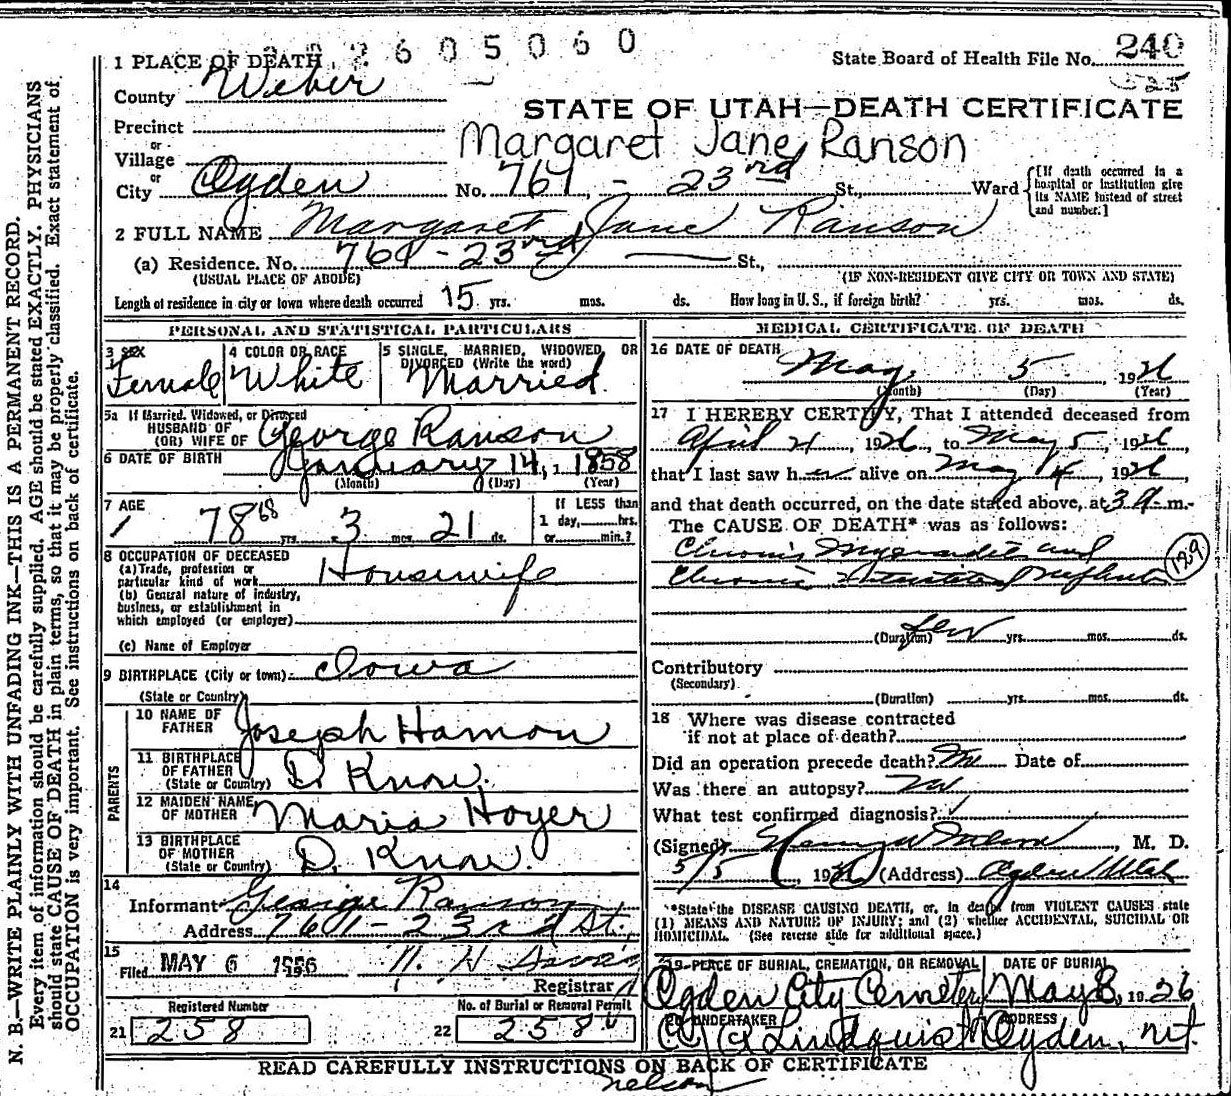 2605060
1 PLACE OF DEATH
State Board of Health File No. 240
525
County Weber
STATE OF UTAH—DEATH CERTIFICATE
Precinct
or
Village
Margaret Jane Ranson
or
City Ogden No. 761 - 23rd St., Ward
[If death occurred in a hospital or institution give its NAME instead of street and number.]
2 FULL NAME Margaret Jane Ranson
(a) Residence. No. 761 - 23rd St.,
(USUAL PLACE OF ABODE) (IF NON-RESIDENT GIVE CITY OR TOWN AND STATE)
Length of residence in city or town where death occurred 15 yrs. mos. ds. How long in U. S., if foreign birth? yrs. mos. ds.
PERSONAL AND STATISTICAL PARTICULARS
3 SEX
Female
4 COLOR OR RACE
White
5 SINGLE, MARRIED, WIDOWED OR
DIVORCED (Write the word)
Married
5a If Married, Widowed, or Divorced
HUSBAND OF
(OR) WIFE OF George Ranson
6 DATE OF BIRTH January 14, 1858
(Month) (Day) (Year)
7 AGE
78 68 yrs. 3 mos. 21 ds.
If LESS than
1 day, hrs.
or min.?
8 OCCUPATION OF DECEASED
(a) Trade, profession or
particular kind of work Housewife
(b) General nature of industry,
business, or establishment in
which employed (or employer)
(c) Name of Employer
9 BIRTHPLACE (City or town) Iowa
(State or Country)
PARENTS
10 NAME OF
FATHER Joseph Hamon
11 BIRTHPLACE
OF FATHER
(State or Country) D. Know.
12 MAIDEN NAME
OF MOTHER Maria Hoyer
13 BIRTHPLACE
OF MOTHER
(State or Country) D. Know.
14
Informant George Ranson
Address 761 - 23rd St.
15
Filed MAY 6 1926 N. H.
Registrar
Registered Number
21 258
No. of Burial or Removal Permit
22 258
MEDICAL CERTIFICATE OF DEATH
16 DATE OF DEATH
May 5, 1926
(Month) (Day) (Year)
17 I HEREBY CERTIFY, That I attended deceased from
April 21, 1926, to May 5, 1926
that I last saw her alive on May 4, 1926
and that death occurred, on the date stated above, at 3 A. m.
The CAUSE OF DEATH* was as follows:
Chronic Myocarditis and
Chronic Interstitial Nephritis
129
(Duration) few yrs. mos. ds.
Contributory
(Secondary)
(Duration) yrs. mos. ds.
18 Where was disease contracted
if not at place of death?
Did an operation precede death? No Date of
Was there an autopsy? No
What test confirmed diagnosis?
(Signed) Nelson, M. D.
5/5, 1926 (Address) Ogden Utah
*State the DISEASE CAUSING DEATH, or, in death from VIOLENT CAUSES state
(1) MEANS AND NATURE OF INJURY; and (2) whether ACCIDENTAL, SUICIDAL OR
HOMICIDAL. (See reverse side for additional space.)
19 PLACE OF BURIAL, CREMATION, OR REMOVAL
Ogden City Cemetery
DATE OF BURIAL
May 8, 1926
20 UNDERTAKER
Lindquist
ADDRESS
Ogden, Ut.
READ CAREFULLY INSTRUCTIONS ON BACK OF CERTIFICATE
nelson
N. B.—WRITE PLAINLY WITH UNFADING INK—THIS IS A PERMANENT RECORD.
Every item of information should be carefully supplied. AGE should be stated EXACTLY. PHYSICIANS
should state CAUSE OF DEATH in plain terms, so that it may be properly classified. Exact statement of
OCCUPATION is very important. See instructions on back of certificate.